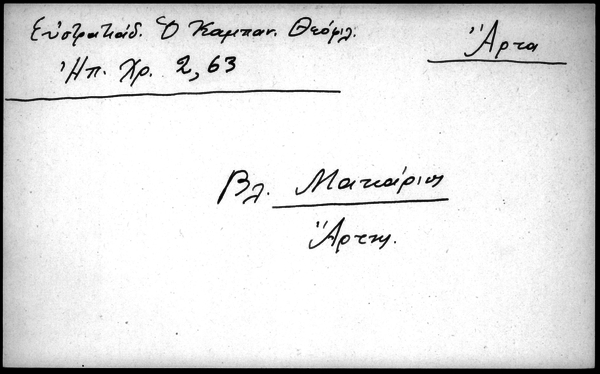 Εὐστρατιάδ. Ὁ Καμπαν. Θεόφιλ.
Ἠπ. Χρ. 2, 63
Ἄρτα
Βλ. Μακάριος
Ἄρτης.